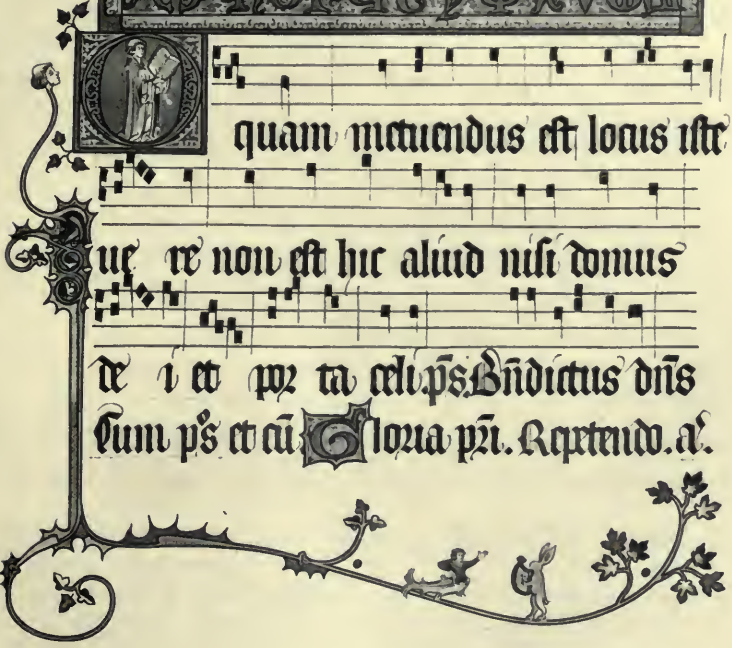 O quam metuendus est locus iste
ue re non est hic aliud nisi domus
de i et por ta celi. p̄s. B̄ndictus dn̄s
Cum p̊s et cū Gloria pr̄i. Repetendo. a͛.